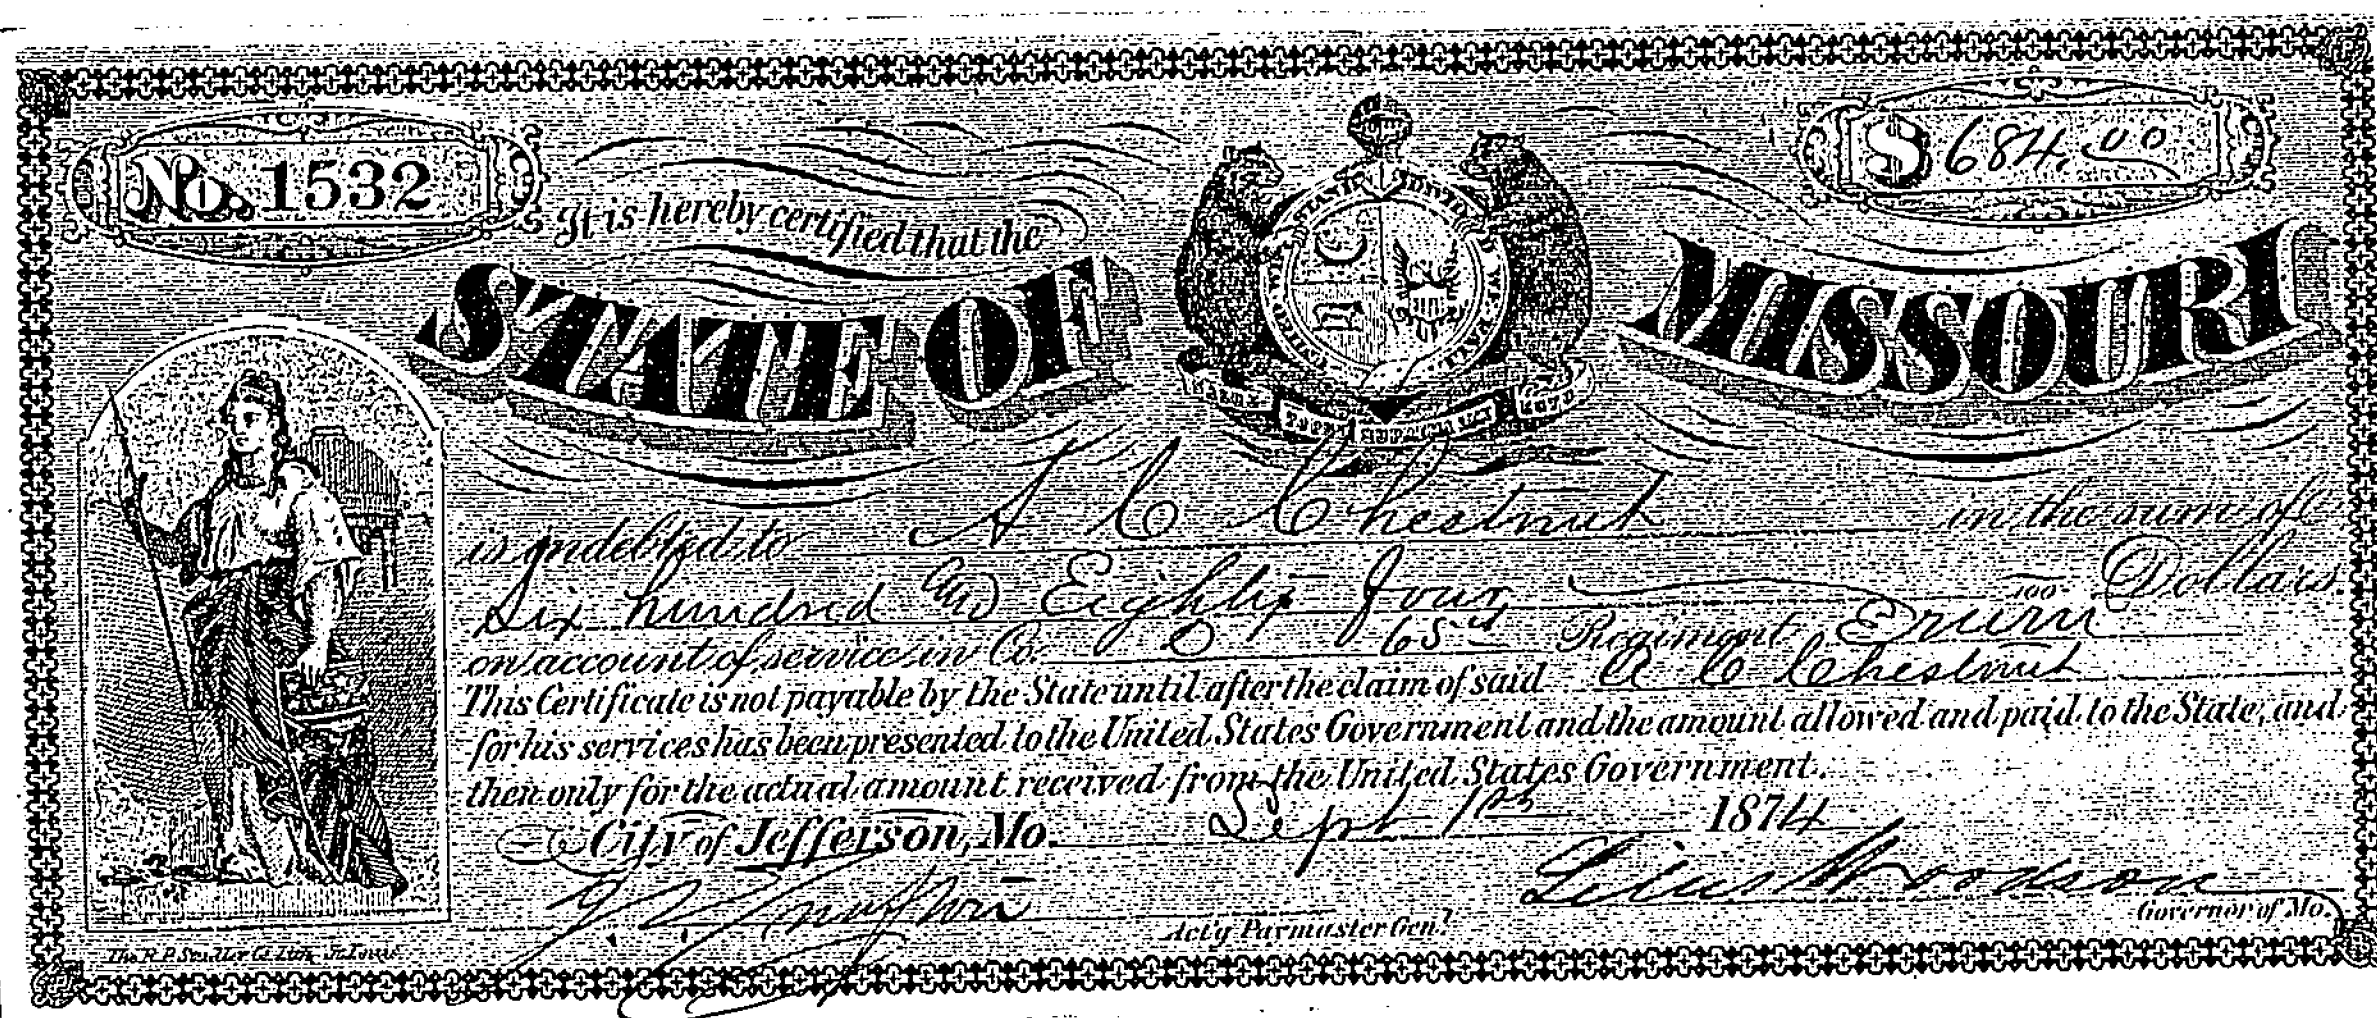 No. 1532
$ 684.00
It is hereby certified that the
STATE OF MISSOURI
UNITED WE STAND DIVIDED WE FALL
SALUS POPULI SUPREMA LEX ESTO
is indebted to A C Chestnut in the sum of
Six hundred and Eighty four 100 Dollars
on account of service in Co. D 65th Regiment
This Certificate is not payable by the State until after the claim of said A C Chestnut
for his services has been presented to the United States Government and the amount allowed and paid to the State, and
then only for the actual amount received from the United States Government.
City of Jefferson, Mo. Sept 1st 1874
Silas Woodson
Act'g Paymaster Gen'l
Governor of Mo.
The R.P. Studley Co. Lith. St. Louis